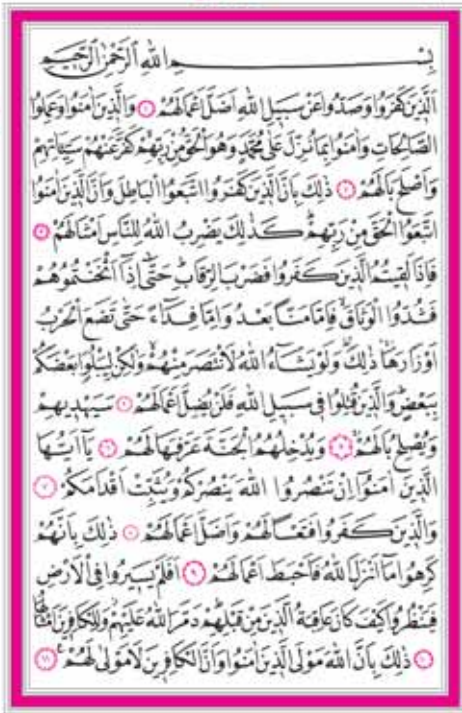 بِسْمِ اللّٰهِ الرَّحْمٰنِ الرَّحِيمِ
اَلَّذِينَ كَفَرُوا وَصَدُّوا عَنْ سَبِيلِ اللّٰهِ اَضَلَّ اَعْمَالَهُمْ ﴿١﴾ وَالَّذِينَ اٰمَنُوا وَعَمِلُوا
الصَّالِحَاتِ وَاٰمَنُوا بِمَا نُزِّلَ عَلٰى مُحَمَّدٍ وَهُوَ الْحَقُّ مِنْ رَبِّهِمْ كَفَّرَ عَنْهُمْ سَيِّـَٔاتِهِمْ
وَاَصْلَحَ بَالَهُمْ ﴿٢﴾ ذٰلِكَ بِاَنَّ الَّذِينَ كَفَرُوا اتَّبَعُوا الْبَاطِلَ وَاَنَّ الَّذِينَ اٰمَنُوا
اتَّبَعُوا الْحَقَّ مِنْ رَبِّهِمْ كَذٰلِكَ يَضْرِبُ اللّٰهُ لِلنَّاسِ اَمْثَالَهُمْ
فَاِذَا لَقِيتُمُ الَّذِينَ كَفَرُوا فَضَرْبَ الرِّقَابِ حَتّٰى اِذَا اَثْخَنْتُمُوهُمْ
فَشُدُّوا الْوَثَاقَ فَاِمَّا مَنًّا بَعْدُ وَاِمَّا فِدَاءً حَتّٰى تَضَعَ الْحَرْبُ
اَوْزَارَهَا ذٰلِكَ وَلَوْ يَشَاءُ اللّٰهُ لَانْتَصَرَ مِنْهُمْ وَلٰكِنْ لِيَبْلُوَا بَعْضَكُمْ
بِبَعْضٍ وَالَّذِينَ قُتِلُوا فِي سَبِيلِ اللّٰهِ فَلَنْ يُضِلَّ اَعْمَالَهُمْ سَيَهْدِيهِمْ
وَيُصْلِحُ بَالَهُمْ وَيُدْخِلُهُمُ الْجَنَّةَ عَرَّفَهَا لَهُمْ يَا اَيُّهَا
الَّذِينَ اٰمَنُوا اِنْ تَنْصُرُوا اللّٰهَ يَنْصُرْكُمْ وَيُثَبِّتْ اَقْدَامَكُمْ ﴿٧﴾
وَالَّذِينَ كَفَرُوا فَتَعْسًا لَهُمْ وَاَضَلَّ اَعْمَالَهُمْ ذٰلِكَ بِاَنَّهُمْ
كَرِهُوا مَا اَنْزَلَ اللّٰهُ فَاَحْبَطَ اَعْمَالَهُمْ ﴿٩﴾ اَفَلَمْ يَسِيرُوا فِي الْاَرْضِ
فَيَنْظُرُوا كَيْفَ كَانَ عَاقِبَةُ الَّذِينَ مِنْ قَبْلِهِمْ دَمَّرَ اللّٰهُ عَلَيْهِمْ وَلِلْكَافِرِينَ اَمْثَالُهَا
ذٰلِكَ بِاَنَّ اللّٰهَ مَوْلَى الَّذِينَ اٰمَنُوا وَاَنَّ الْكَافِرِينَ لَا مَوْلٰى لَهُمْ ﴿١١﴾